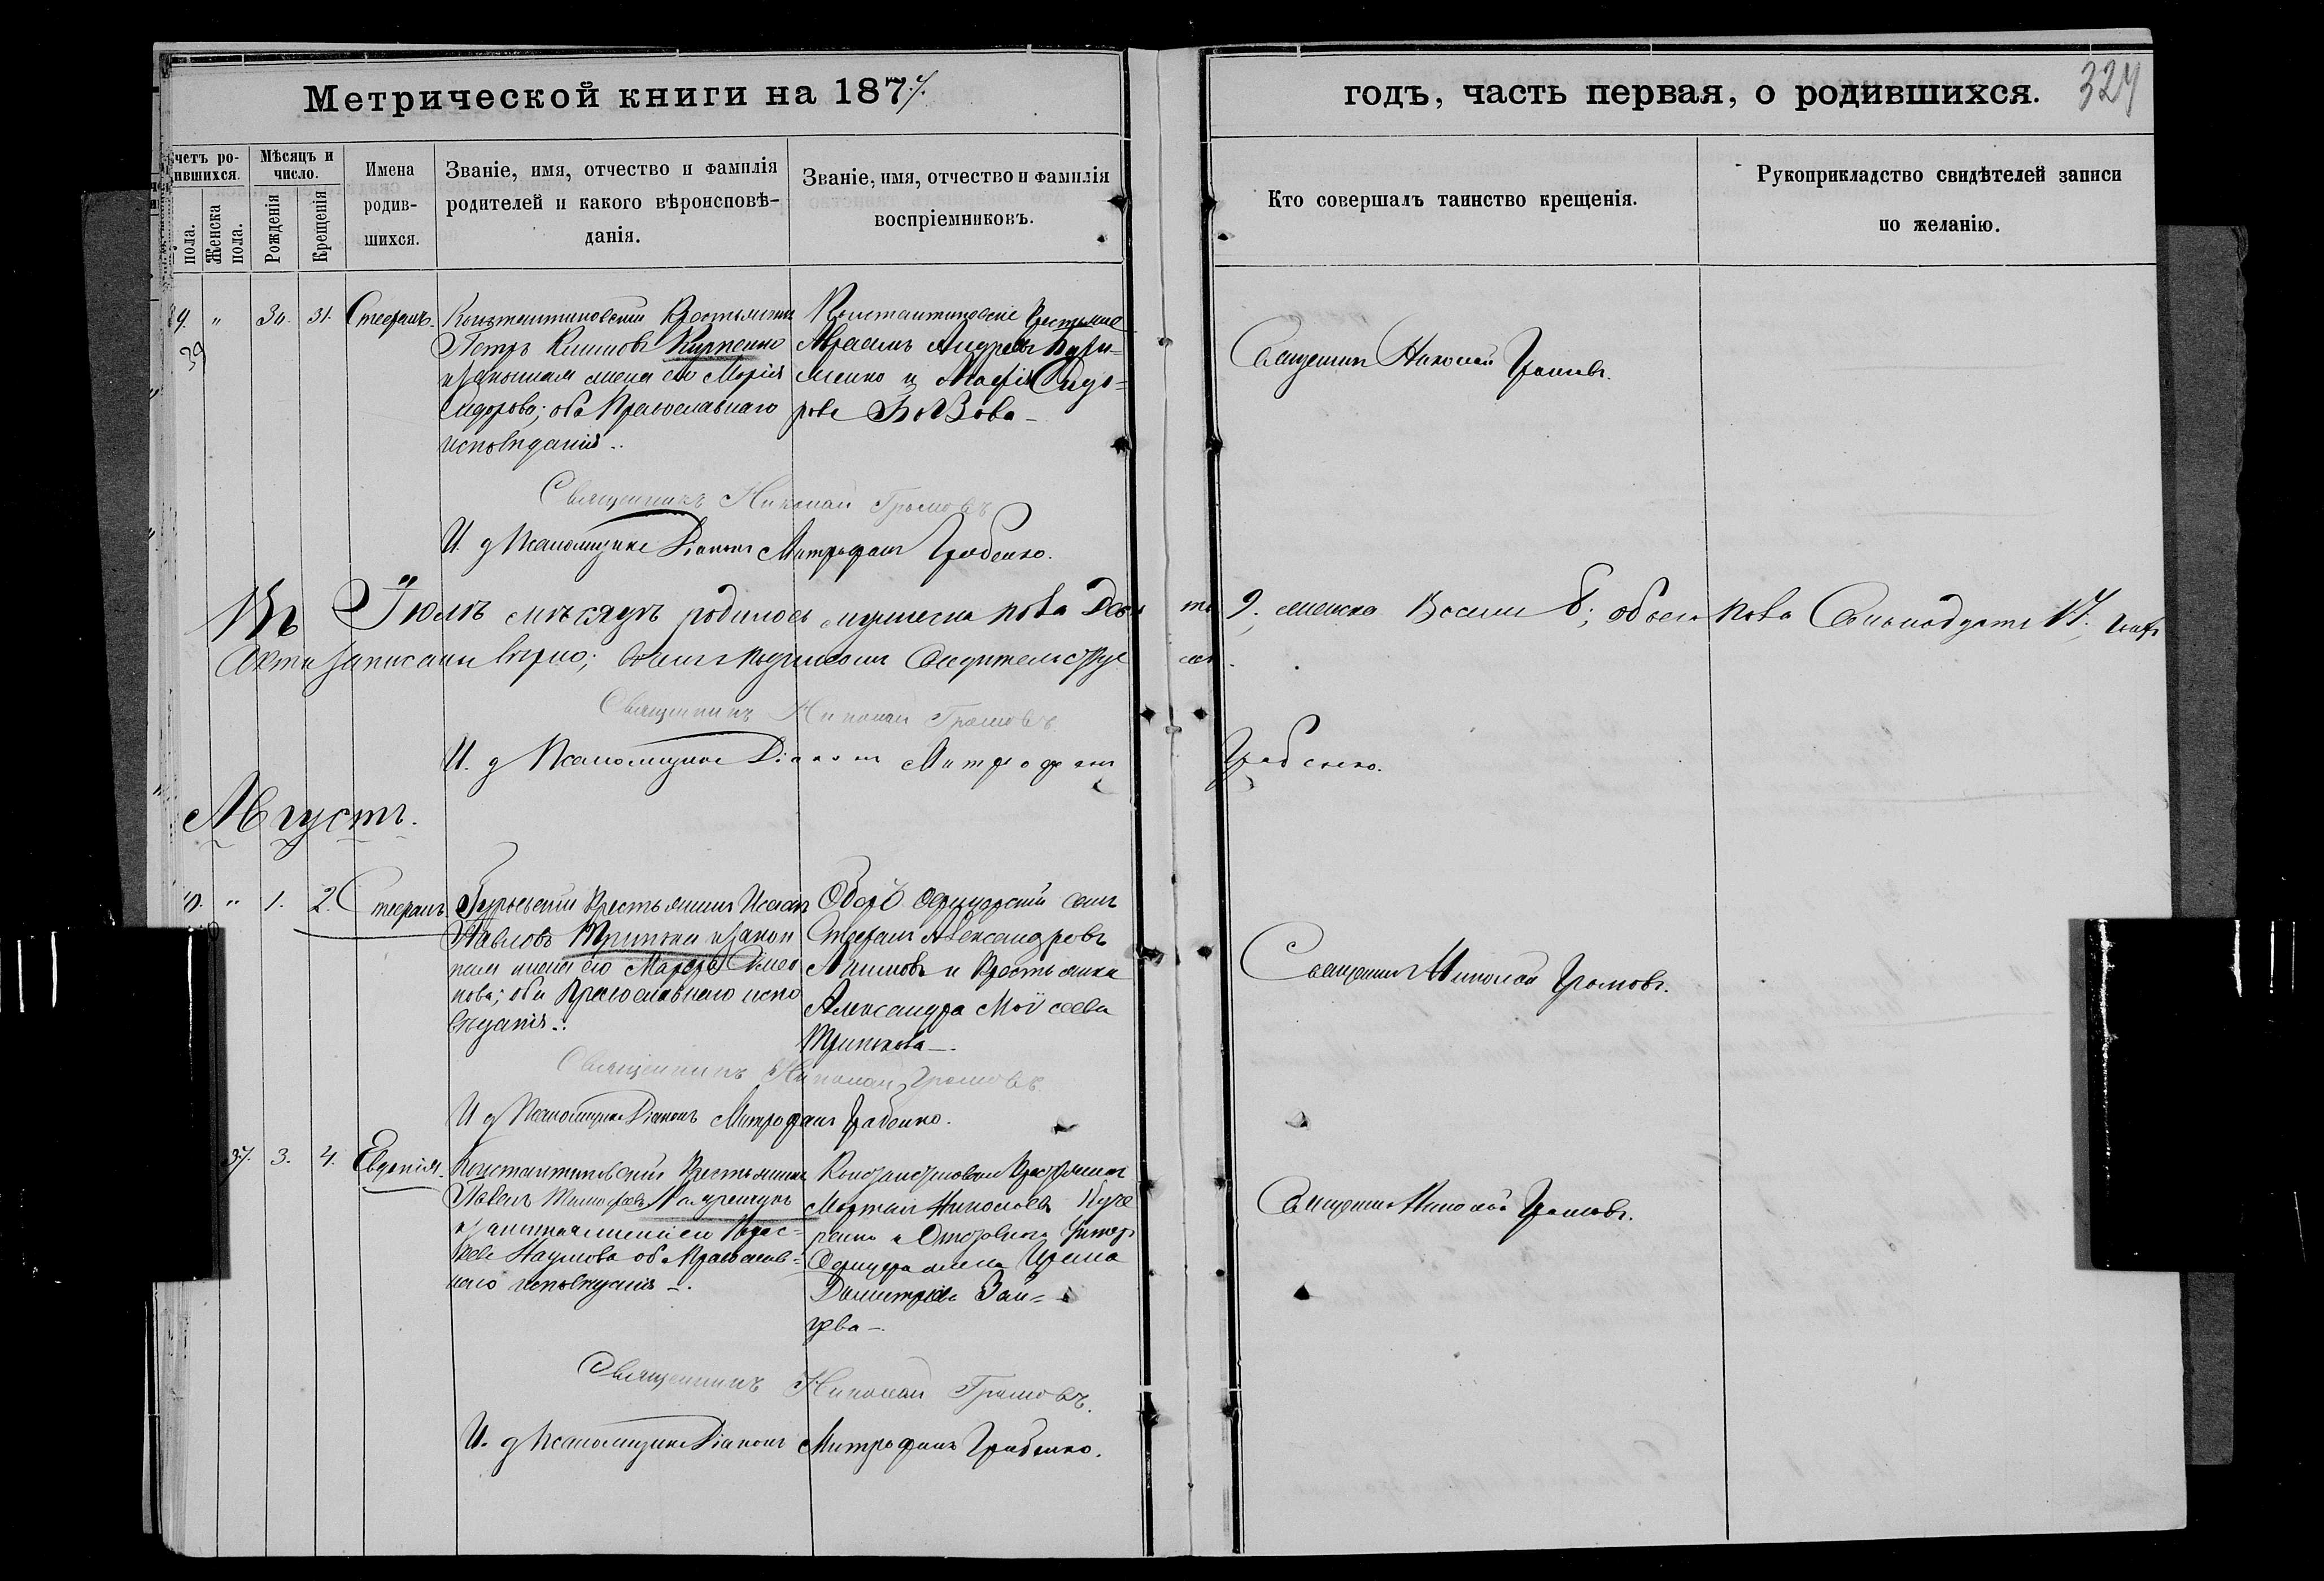 Метрической книги на 1877.
годъ, часть первая, о родившихся.
324
Счетъ ро-
дившихся.
Мѣсяцъ и
число.
пола.
Женска
пола.
Рожденія
Крещенія
Имена
родив-
шихся.
Званіе, имя, отчество и фамилія
родителей и какого вѣроисповѣ-
данія.
Званіе, имя, отчество и фамилія
воспріемниковъ.
Кто совершалъ таинство крещенія.
Рукоприкладство свидѣтелей записи
по желанію.
39
"
30.
31.
Стефанъ.
Константиновскій Крестьянинъ
Петръ Климовъ
и законная жена его Марія
Сидорова; оба Православнаго
исповѣданія..
Константиновскіе Крестьяне
Авраамъ Андреевъ
и Сидо=
рова
Священникъ Николай Громовъ.
Священникъ Николай Громовъ
И. д Псаломщика Діаконъ Митрофанъ Грабенко.
Въ Іюлѣ мѣсяцѣ родилось мужеска пола Девять 9; женска Восемь 8; обоего пола Семнадцать 17.
Акты записаны вѣрно; въ чемъ подписомъ Свидетельствуемъ.
Священникъ Николай Громовъ
И. д Псаломщика Діаконъ Митрофанъ Грабенко.
Августъ.
"
1.
2.
Стефанъ
Гурьевскій Крестьянинъ Исаакъ
Павловъ и закон
ная жена его Марфа
нова; оба Православнаго испо
вѣданія..
Оберъ Офицерскій сынъ
Стефанъ Александровъ
и Крестьянка
Александра Моисеева
Священникъ Николай Громовъ.
Священникъ Николай Громовъ
И д Псаломщика Діаконъ Митрофанъ Грабенко.
37.
3.
4.
Евдокія.
Константиновскій Крестьянинъ
Павелъ
и законная жена его
Наумова оба Православ=
наго исповѣданія —.
Николаевъ
и Отставнаго Унтеръ
Офицера жена
Зай=
цева —
Священникъ Николай Громовъ.
Священникъ Николай Громовъ.
И. д Псаломщика Діаконъ Митрофанъ Грабенко.